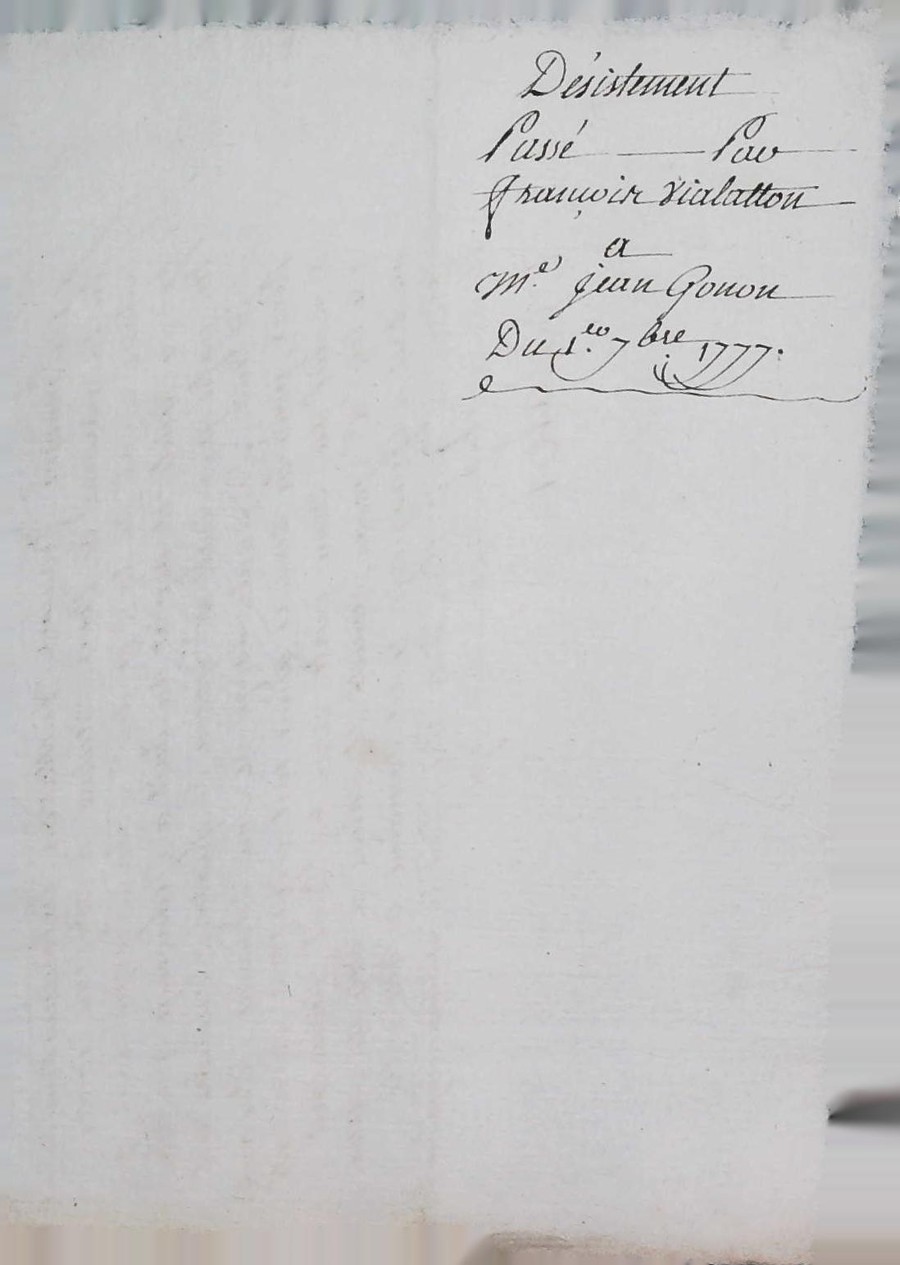 Désistement
Passé Par
françois Vialatton
a
Me. jean Gonon
Du 1.er 7bre 1777.